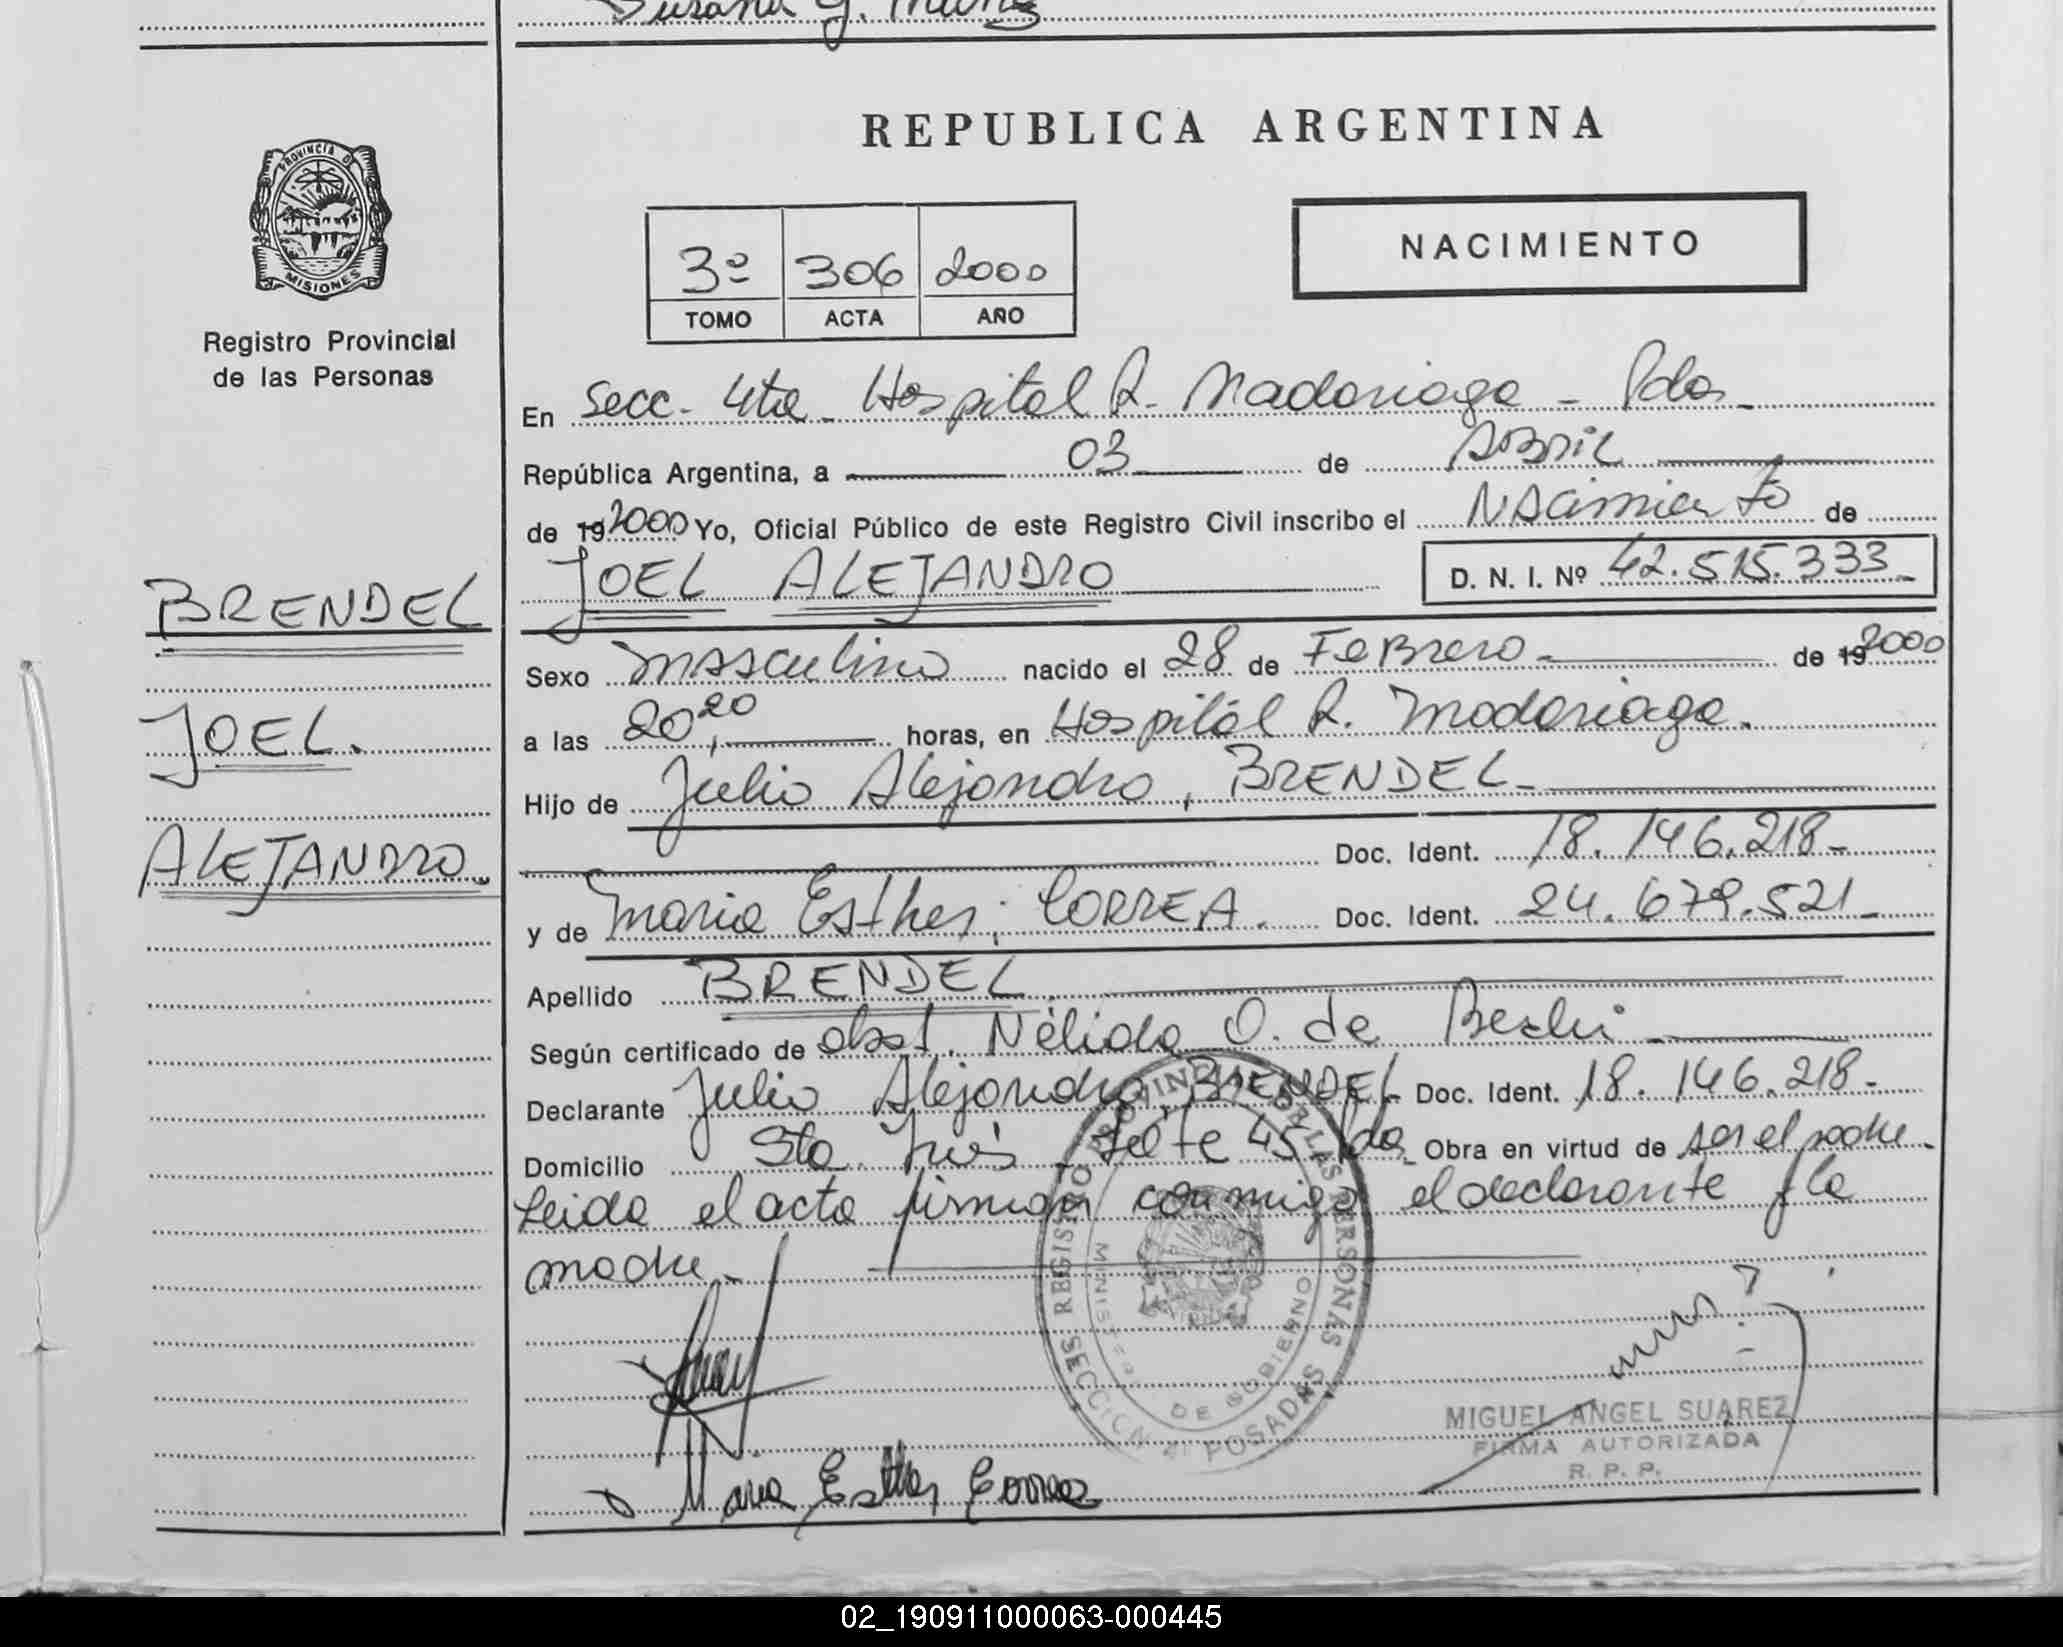 Susana G. Muniz
REPUBLICA ARGENTINA
PROVINCIA D
MISIONES
Registro Provincial
de las Personas
3º 306 2000
TOMO ACTA AÑO
NACIMIENTO
En Secc. 4ta. Hospital R. Madariaga - Pdas -
República Argentina, a 03 de Abril
de 192000 Yo, Oficial Público de este Registro Civil inscribo el Nacimiento de
JOEL ALEJANDRO D. N. I. Nº 42.515.333
BRENDEL
JOEL.
ALEJANDRO.
Sexo masculino nacido el 28 de Febrero - de 192000
a las 20,20 horas, en Hospital R. Madariaga.
Hijo de Julio Alejandro, BRENDEL -
Doc. Ident. 18.146.218 -
y de Maria Esther, CORREA. Doc. Ident. 24.679.521 -
Apellido BRENDEL
Según certificado de obst. Nélida O. de
Declarante Julio Alejandro, BRENDEL Doc. Ident. 18.146.218 -
Domicilio Sta. Inés 45 Pdas Obra en virtud de ser el padre -
Leida el acta firman conmigo el declarante y la
madre -
REGISTRO PROVINCIAL DE LAS PERSONAS
MINISTERIO DE GOBIERNO
SECCION 4ª POSADAS
MIGUEL ANGEL SUAREZ
FIRMA AUTORIZADA
R. P. P.
Maria Esther Correa
02_190911000063-000445